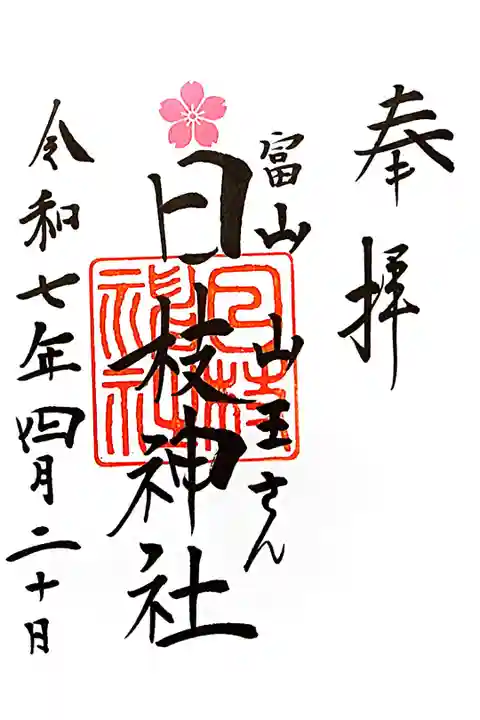 奉拝
富山 山王さん
日枝神社
日枝神社
令和七年四月二十日